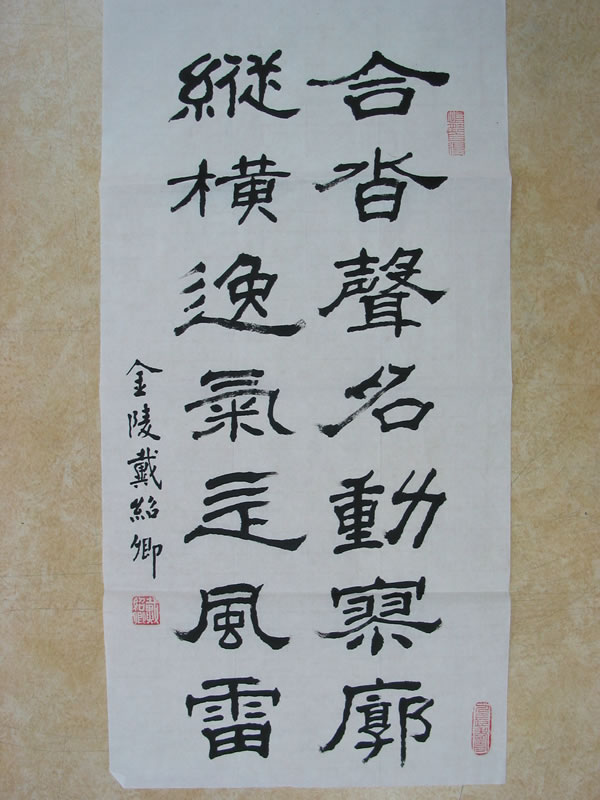 合沓聲名動寥廓
縱橫逸氣走風雷
金陵戴紹卿